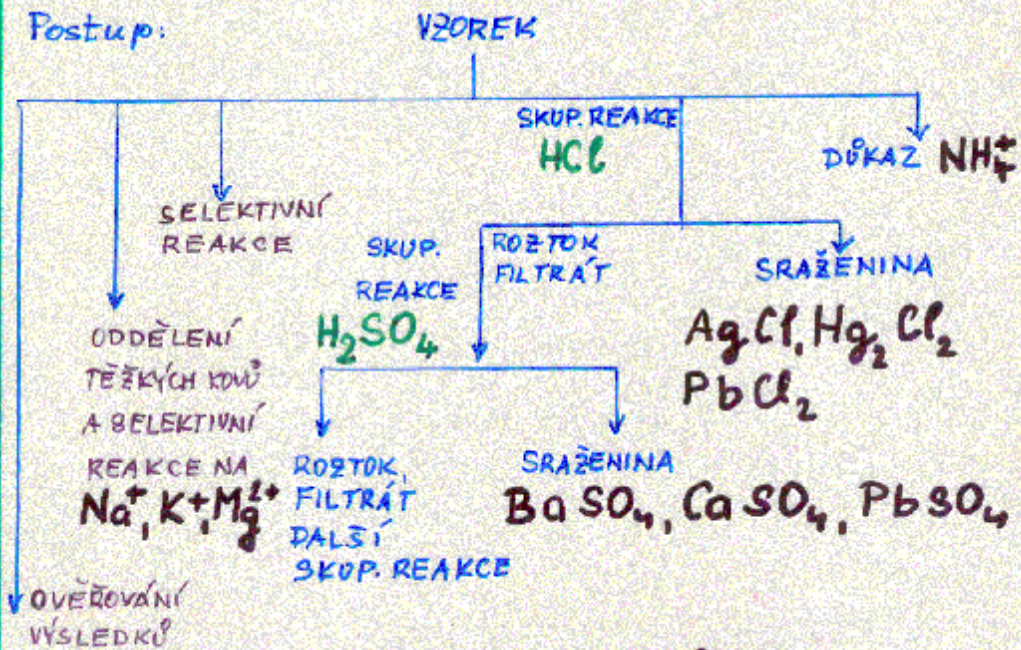 Postup:
VZOREK
SKUP. REAKCE
HCl
DŮKAZ NH₄⁺
SELEKTIVNÍ
REAKCE
SKUP.
REAKCE
H₂SO₄
ROZTOK
FILTRÁT
SRAŽENINA
AgCl, Hg₂Cl₂
PbCl₂
ODDĚLENÍ
TĚŽKÝCH KOVŮ
A SELEKTIVNÍ
REAKCE NA
Na⁺, K⁺, Mg²⁺
ROZTOK,
FILTRÁT
DALŠÍ
SKUP. REAKCE
SRAŽENINA
BaSO₄, CaSO₄, PbSO₄
OVĚŘOVÁNÍ
VÝSLEDKŮ